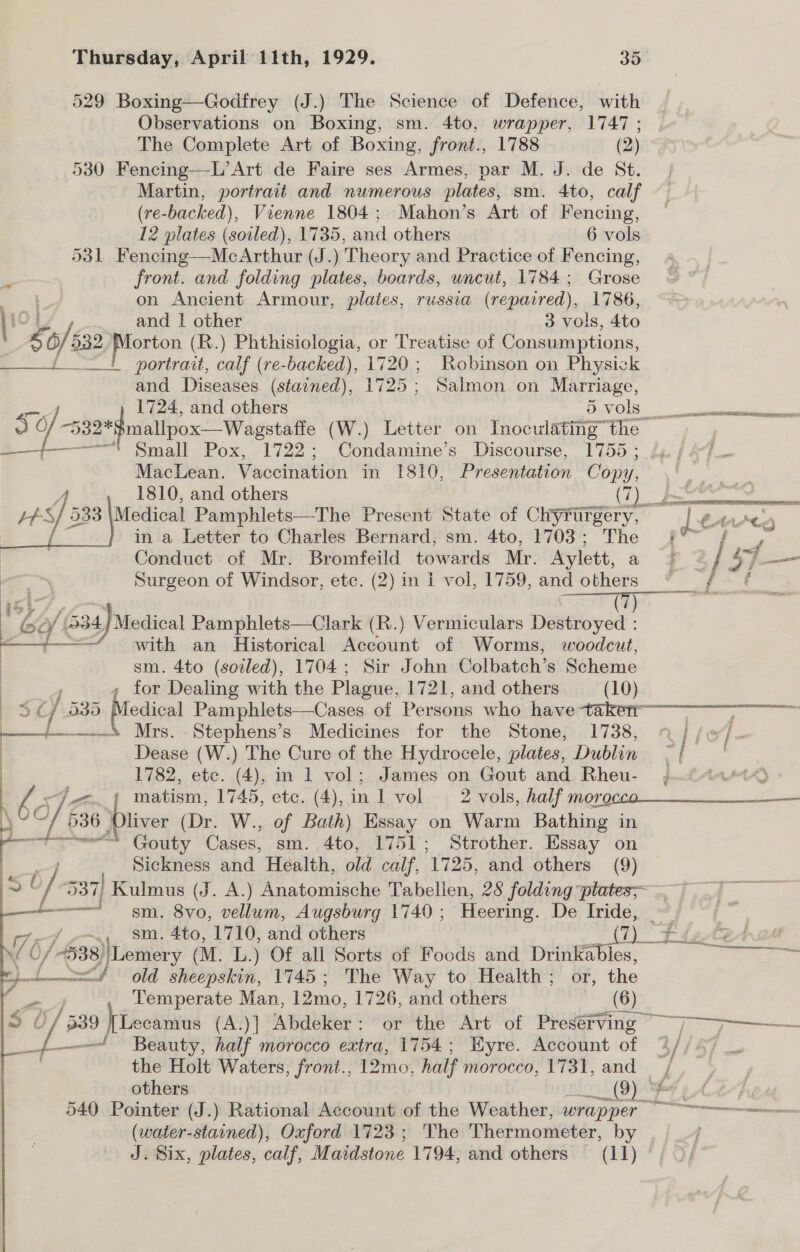 Thursday, April 11th, 1929. 35
529 Boxing—Godfrey (J.) The Science of Defence, with
Observations on Boxing, sm. 4to, wrapper, 1747;
The Complete Art of Boxing, front., 1788 (2)
530 Fencing—L'Art de Faire ses Armes, par M. J. de St.
Martin, portrait and numerous plates, sm. 4to, calf
(re-backed), Vienne 1804; Mahon's Art of Fencing,
12 plates (soiled), 1735, and others 6 vols
531 Fencing—McArthur (J.) Theory and Practice of Fencing,
front. and folding plates, boards, uncut, 1784; Grose
on Ancient Armour, plates, russia (repaired), 1786,
and 1 other 3 vols, 4to
532 Morton (R.) Phthisiologia, or Treatise of Consumptions,
portrait, calf (re-backed), 1720; Robinson on Physick
and Diseases (stained), 1725; Salmon on Marriage,
1724, and others 5 vols
532* Smallpox—Wagstaffe (W.) Letter on Inoculating the
Small Pox, 1722; Condamine's Discourse, 1755;
MacLean. Vaccination in 1810, Presentation Copy,
1810, and others (7)
533 Medical Pamphlets—The Present State of Chyrurgery,
in a Letter to Charles Bernard, sm. 4to, 1703; The
Conduct of Mr. Bromfeild towards Mr. Aylett, a
Surgeon of Windsor, etc. (2) in 1 vol, 1759, and others
(7)
534 Medical Pamphlets—Clark (R.) Vermiculars Destroyed:
with an Historical Account of Worms, woodcut,
sm. 4to (soiled), 1704; Sir John Colbatch's Scheme
for Dealing with the Plague, 1721, and others (10)
535 Medical Pamphlets—Cases of Persons who have taken
Mrs. Stephens's Medicines for the Stone, 1738,
Dease (W.) The Cure of the Hydrocele, plates, Dublin
1782, etc. (4), in 1 vol; James on Gout and Rheu-
matism, 1745, etc. (4), in 1 vol 2 vols, half morocco
536 Oliver (Dr. W., of Bath) Essay on Warm Bathing in
Gouty Cases, sm. 4to, 1751; Strother. Essay on
Sickness and Health, old calf, 1725, and others (9)
537 Kulmus (J. A.) Anatomische Tabellen, 28 folding plates,
sm. 8vo, vellum, Augsburg 1740; Heering. De Iride,
sm. 4to, 1710, and others (7)
538 Lemery (M. L.) Of all Sorts of Foods and Drinkables,
old sheepskin, 1745; The Way to Health; or, the
Temperate Man, 12mo, 1726, and others (6)
539 [Lecamus (A.)] Abdeker: or the Art of Preserving
Beauty, half morocco extra, 1754; Eyre. Account of
the Holt Waters, front., 12mo, half morocco, 1731, and
others (9)
540 Pointer (J.) Rational Account of the Weather, wrapper
(water-stained), Oxford 1723; The Thermometer, by
J. Six, plates, calf, Maidstone 1794, and others (11)